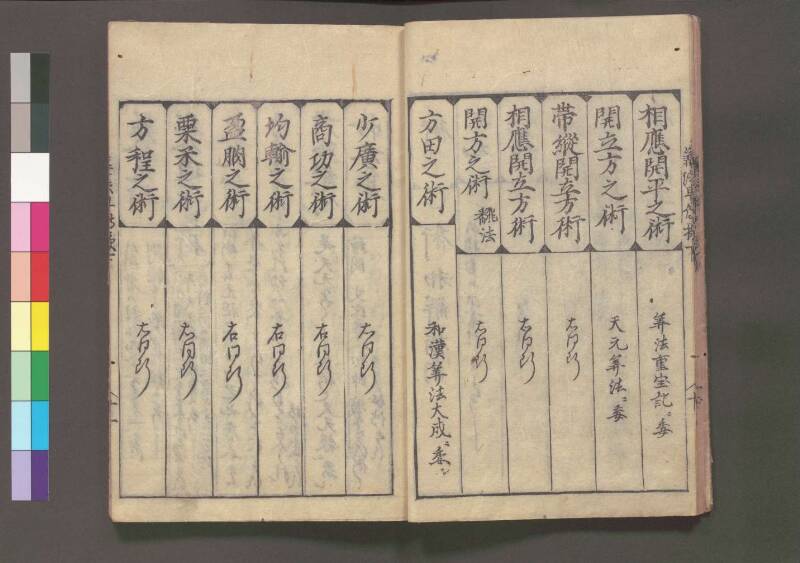 相應開平之術
算法重宝記ニ委
開立方之術
天元算法ニ委
帯縱開立方術
右同断
相應開立方術
右同断
開方之術 飜法
右同断
方田之術
和漢算法大成ニ委シ
少廣之術
右同断
商功之術
右同断
均輸之術
右同断
盈朒之術
右同断
粟禾之術
右同断
方程之術
右同断